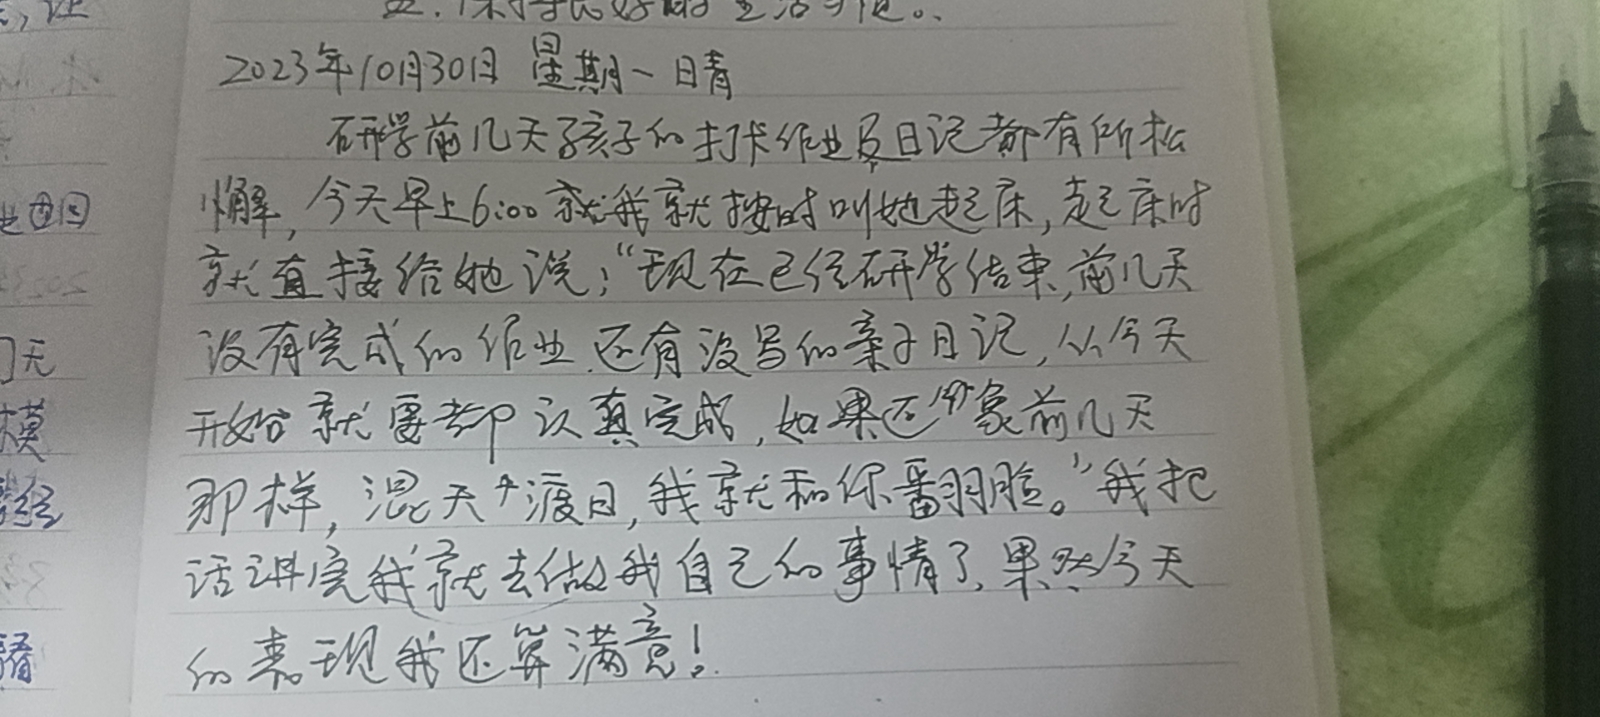 保持良好的生活习惯。
2023年10月30日 星期一 日青
研学前几天孩子的打卡作业及日记都有所松
懈,今天早上6:00就我就按时叫她起床,起床时
就直接给她说:“现在已经研学结束,前几天
没有完成的作业.还有没写的亲子日记,从今天
开始就要都认真完成,如果还像前几天
那样,混天渡日,我就和你翻脸。”我把
话讲完我就去做我自己的事情了.果然今天
的表现我还算满意!
天
模
经